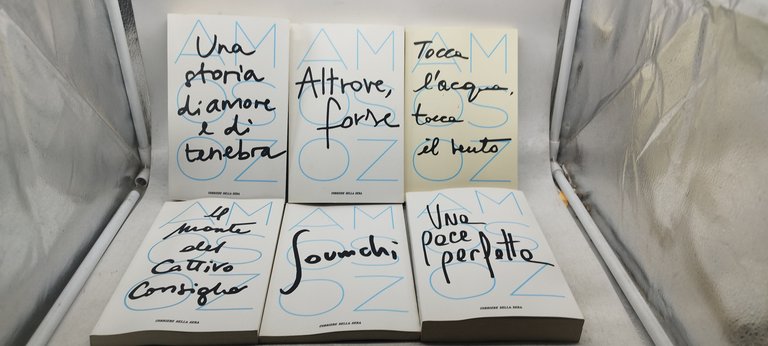 AM
OS
OZ
Una
storia
di amore
e di
tenebra
CORRIERE DELLA SERA
AM
OS
OZ
Altrove,
forse
CORRIERE DELLA SERA
AM
OS
OZ
Tocca
l'acqua,
tocca
il vento
AM
OS
OZ
Il
monte
del
Cattivo
Consiglio
CORRIERE DELLA SERA
AM
OS
OZ
Soumchi
CORRIERE DELLA SERA
AM
OS
OZ
Una
pace
perfetta
CORRIERE DELLA SERA